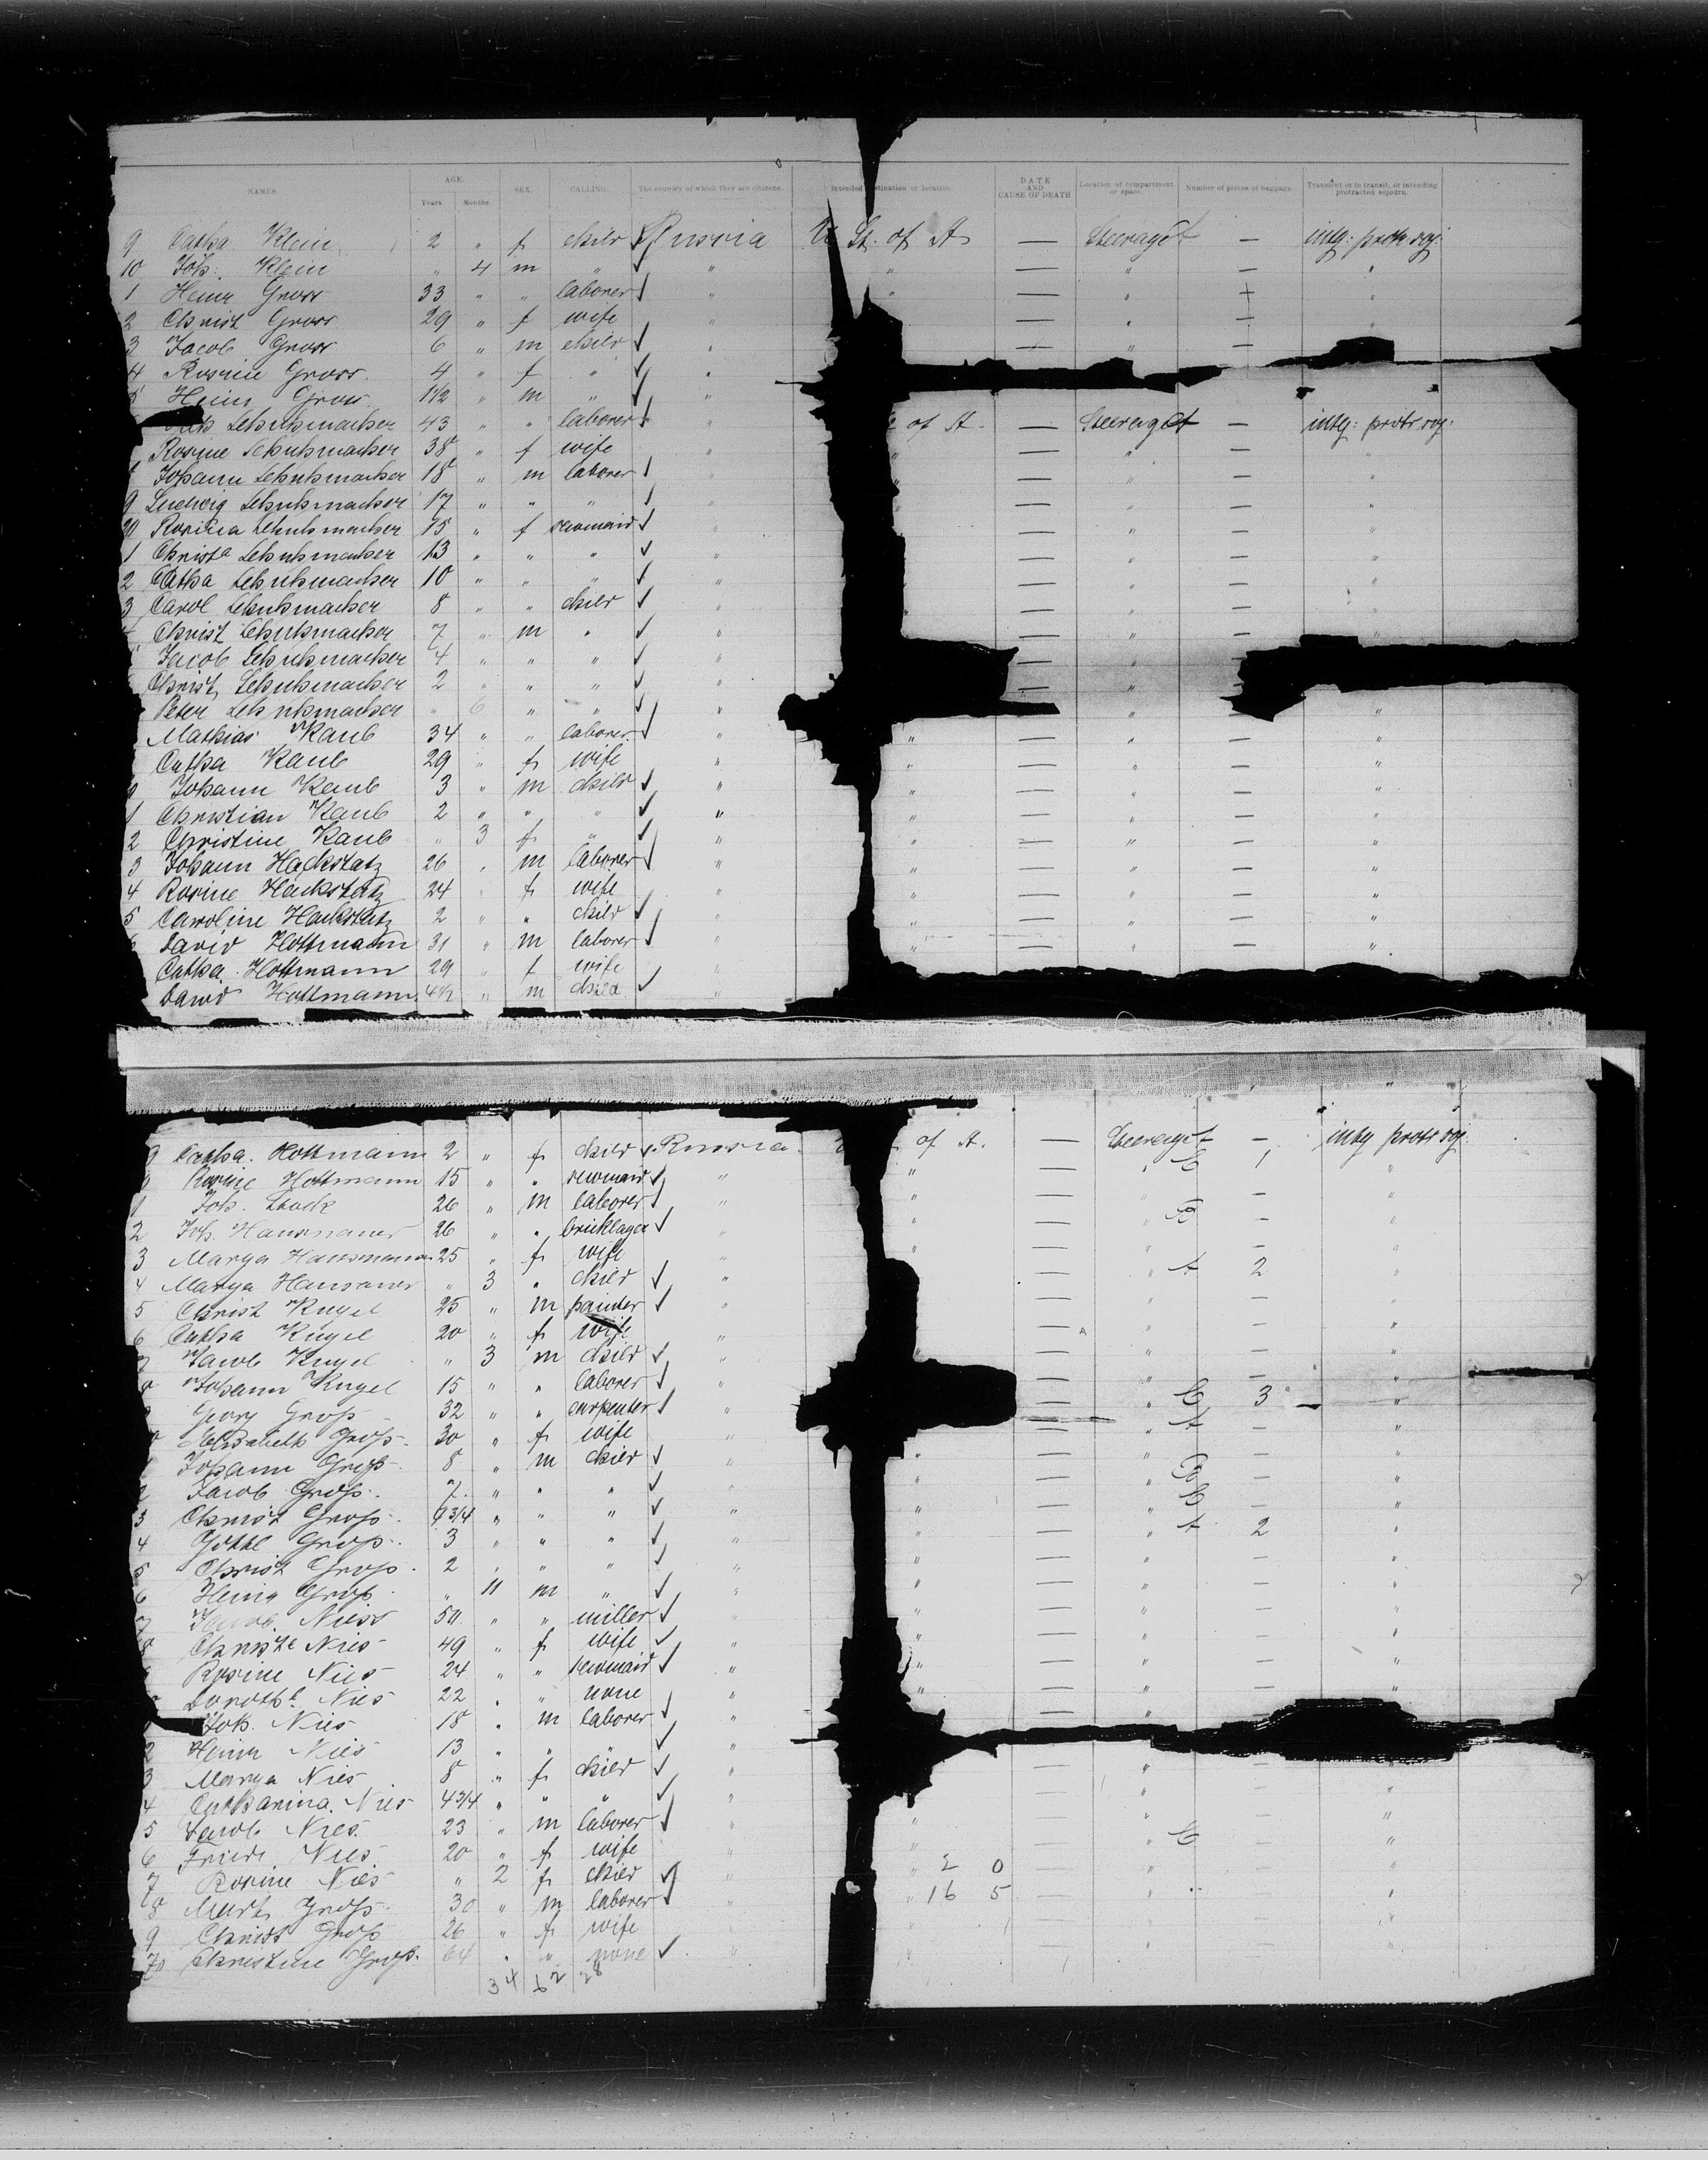 NAMES. AGE. Years. Months. SEX. CALLING. The country of which they are citizens. Intended destination or location. DATE AND CAUSE OF DEATH Location of compartment or space. Number of pieces of baggage. Transient or in transit, or intending protracted sojourn.
9 Catha Klein 2 " f child Russia U St. of A — Steerage — intg: protr soj:
10 Joh. Klein " 4 m " " " — " — "
1 Heinr Gross 33 " " laborer " " — " — "
2 Christ Gross 29 " f wife " — " — "
3 Jacob Gross 6 " m child " — " —
4 Rosine Gross 4 " f " "
5 Heinr Gross 1 1/2 " m " "
Schuhmacher 43 " " laborer " of A. — Steerage — intg: protr soj:
Rosine Schuhmacher 38 " f wife " " — " — "
Johann Schuhmacher 18 " m laborer " " — " — "
9 Ludwig Schuhmacher 17 " " " " " — " — "
20 Rosina Schuhmacher 15 " f sewmaid " " — " — "
1 Christa Schuhmacher 13 " " " " — " — "
2 Catha Schuhmacher 10 " " " " — " — "
3 Carol Schuhmacher 8 " " child " " — " — "
Christ Schuhmacher 7 " m " " — " — "
Jacob Schuhmacher 4 " " " " — "
Christ Schuhmacher 2 " " " " — "
Peter Schuhmacher " 6 " " " — " — "
Mathias Kaub 34 " " laborer " " — " — "
Catha Kaub 29 " f wife " " — " — "
Johann Kaub 3 " m child " " — " — "
1 Christian Kaub 2 " " " " " — " — "
2 Christine Kaub " 3 f " " " — " — "
3 Johann Hackstatz 26 " m laborer " " — " — "
4 Rosine Hackstatz 24 " f wife " " — " — "
5 Caroline Hackstatz 2 " " child " " — " — "
David Hottmann 31 " m laborer " " — " — "
Catha Hottmann 29 " f wife "
David Hottmann 4 1/2 " m child "
9 Catha. Hottmann 2 " f child Russia of A. — Steerage — intg protr soj
Rosine Hottmann 15 " " sewmaid " " — " 1 "
1 Joh. 26 " m laborer " " — " — "
2 Joh. 26 " " bricklayer " " — " — "
3 Marga 25 " f wife " — " — "
4 Marga " 3 " child " — " A 2 "
5 Christ Kugel 25 " m painter " — " — "
6 Catha Kugel 20 " f wife " — " — "
7 Jacob Kugel " 3 m child " " — " — "
Johann Kugel 15 " " laborer " — " — "
Georg Groß 32 " " carpenter " — " 3 "
Elisabeth Groß 30 " f wife " — " A — "
Johann Groß 8 " m child " " — " — "
2 Jacob Groß 7 " " " " " — " — "
3 Christ Groß 4 3/4 " " " " " — " — "
4 Gottl Groß 3 " " " " " — " A 2 "
5 Christ Groß 2 " " " " " — " — "
6 Heinr Groß " 11 m " " " — " — "
7 Jacob Niess 50 " " miller " " — " — "
8 Christe Nies 49 " f wife " " — " — "
Rosine Nies 24 " " sewmaid " " — " — "
Dorothe Nies 22 " " none " " — " — "
Joh. Nies 18 " m laborer "
2 Heinr Nies 13 " " " "
3 Marga Nies 8 " f child " — " — "
4 Catharina Nies 4 3/4 " " " " — " — "
5 Jacob Nies 23 " m laborer " " — " — "
6 Friedr Nies 20 " f wife " " — " — "
7 Rosine Nies " 2 f child " " 2 0 — " — "
8 Groß 30 " m laborer " " 16 5 — " "
9 Christ Groß 26 " f wife " " — " — "
70 Christine Groß 64 " " none " " — " — "
34 62 28